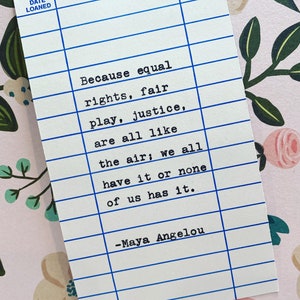 DATE
LOANED
Because equal
rights, fair
play, justice,
are all like
the air; we all
have it or none
of us has it.
-Maya Angelou